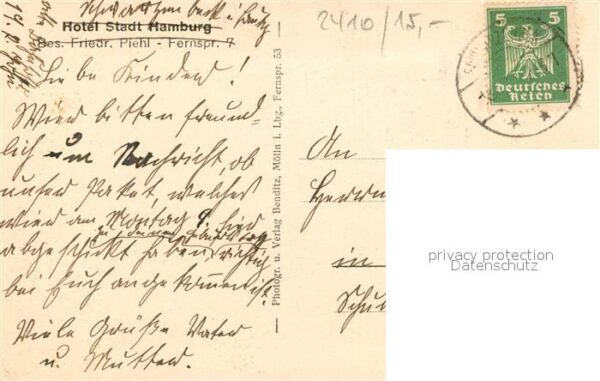 Schwarzenbek i. Lauenb.
Hotel Stadt Hamburg
Bes. Friedr. Piehl - Fernspr. 7
2410/15,-
5
5
Deutsches
Reich
Liebe Kinder!
Wir bitten freund-
lich um Nachricht, ob
unser Paket, welches
wir am Montag
abgeschickt haben richtig
bei Euch angekommen ist.
Viele Grüße Vater
u. Mutter.
Photogr. u. Verlag Benditz, Mölln i. Lbg., Fernspr. 53
An
Herrn
in
Schu
privacy protection
Datenschutz